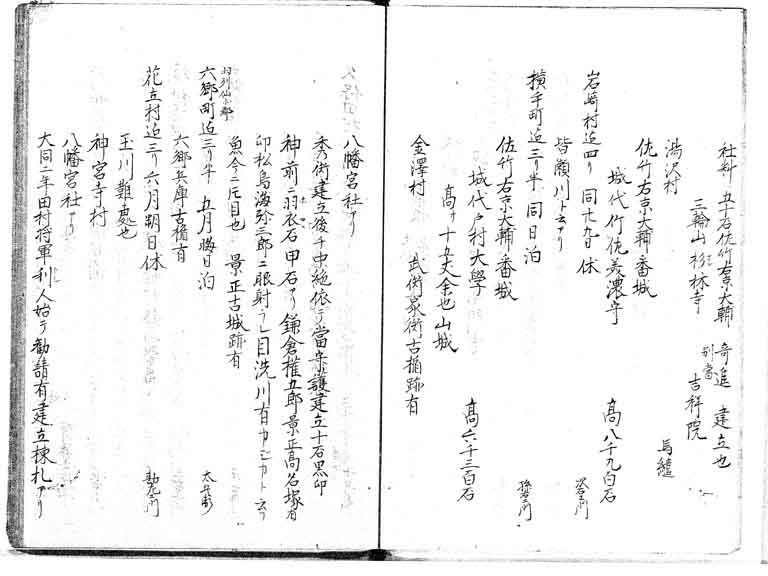 社料 五十石佐竹右京大輔 寄進 建立也
三輪山杉林寺 別當 吉祥院
湯沢村 馬継
佐竹右京大輔番城
城代竹佐美濃守 高八千九百石
岩崎村迠四リ 同廿九日休
皆瀬川ト云アリ
横手町迠三リ半 同日泊 孫左衛門
佐竹右京大輔番城
城代戸村大學 高六千三百石
高サ十五丈余也山城
金澤村 武衡家衡古楯跡有
八幡宮社アリ
秀衡建立後チ中絶依テ當守護建立十石黒印
神前ニ羽衣石甲石アリ鎌倉権五郎景正高名塚有
即松鳥海弥三郎ニ眼射ラレ目洗川有カジカト云フ
魚今ニ片目也 景正古城跡有
羽列仙北郡
六郷町迠三リ半 五月晦日泊 太兵衛
六郷兵庫古楯有
花立村迠三リ六月朔日休 勘左衛門
玉川難處也
神宮寺村
八幡宮社アリ
大同二年田村将軍利人始テ勧請有建立棟札アリ